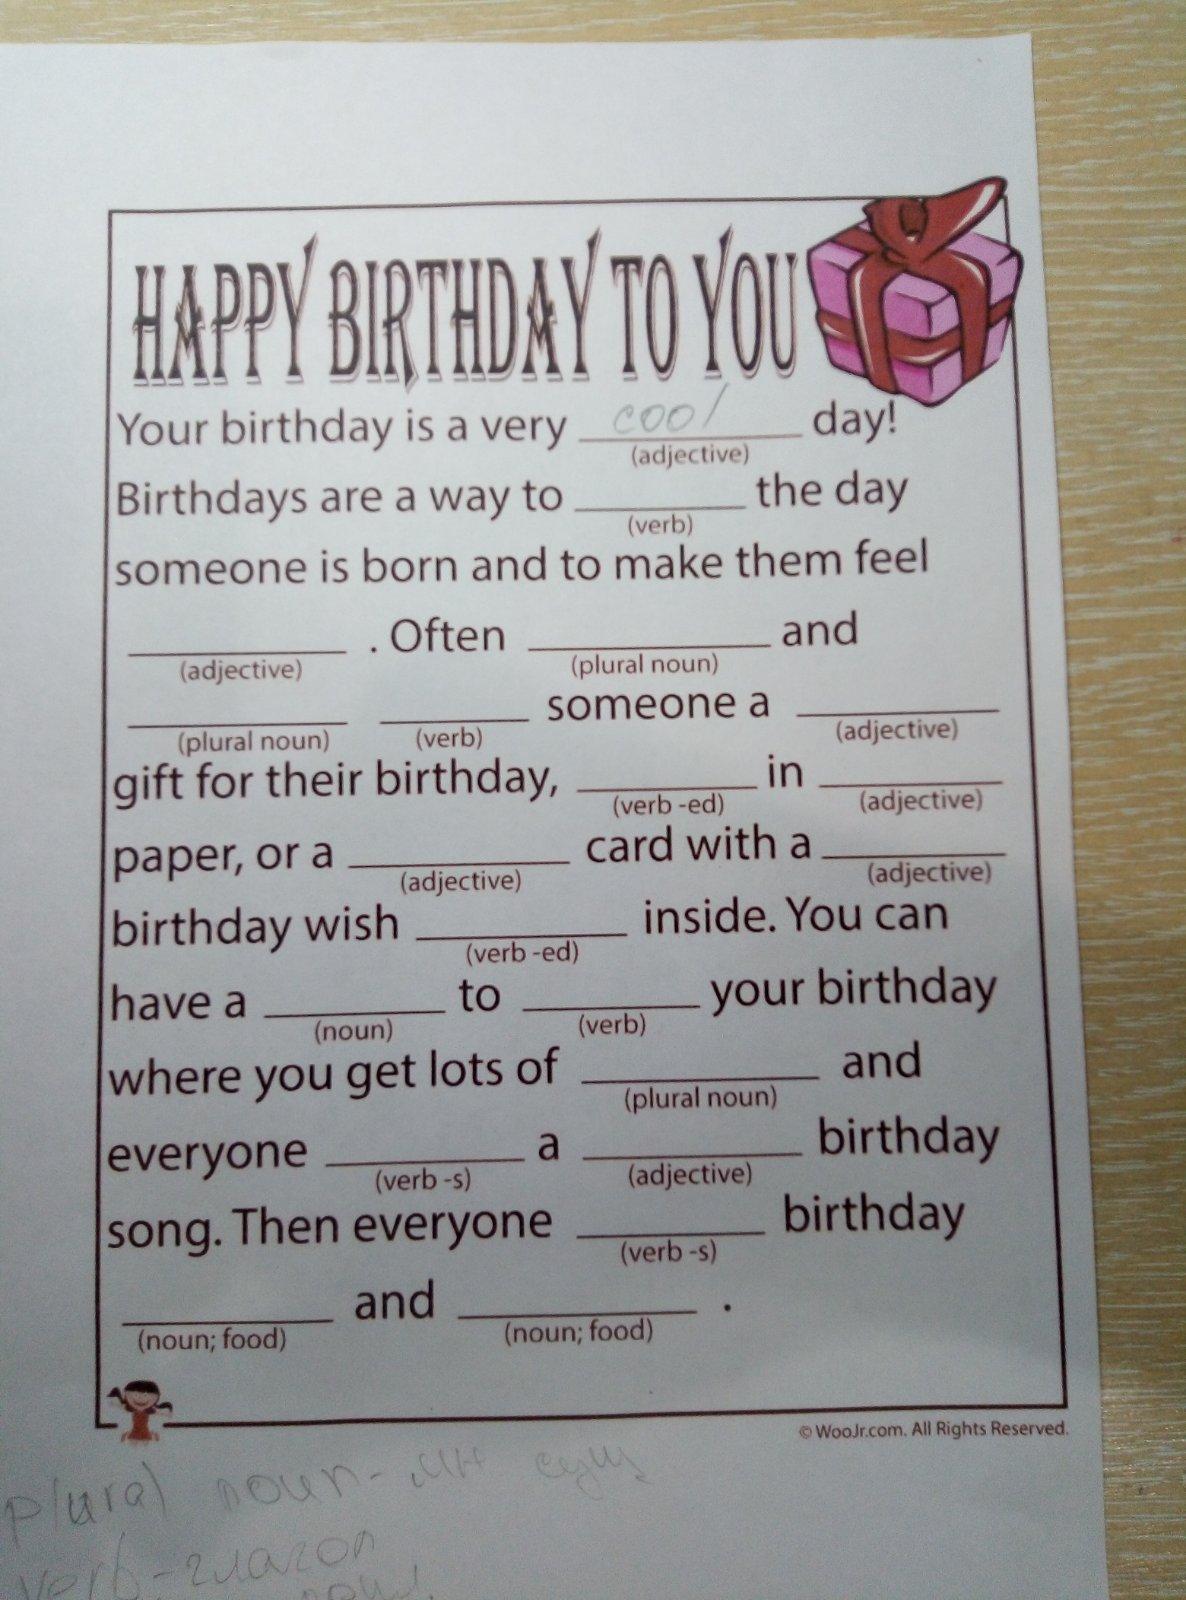 HAPPY BIRTHDAY TO YOU
Your birthday is a very cool day!
(adjective)
Birthdays are a way to ____ the day
(verb)
someone is born and to make them feel
____ . Often ____ and
(adjective) (plural noun)
____ ____ someone a ____
(plural noun) (verb) (adjective)
gift for their birthday, ____ in ____
(verb -ed) (adjective)
paper, or a ____ card with a ____
(adjective) (adjective)
birthday wish ____ inside. You can
(verb -ed)
have a ____ to ____ your birthday
(noun) (verb)
where you get lots of ____ and
(plural noun)
everyone ____ a ____ birthday
(verb -s) (adjective)
song. Then everyone ____ birthday
(verb -s)
____ and ____ .
(noun; food) (noun; food)
© WooJr.com. All Rights Reserved.
plural noun - мн сущ
verb - глагол